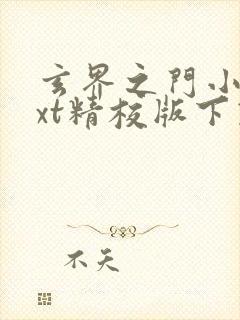 玄界之門小
xt精校版下
不天